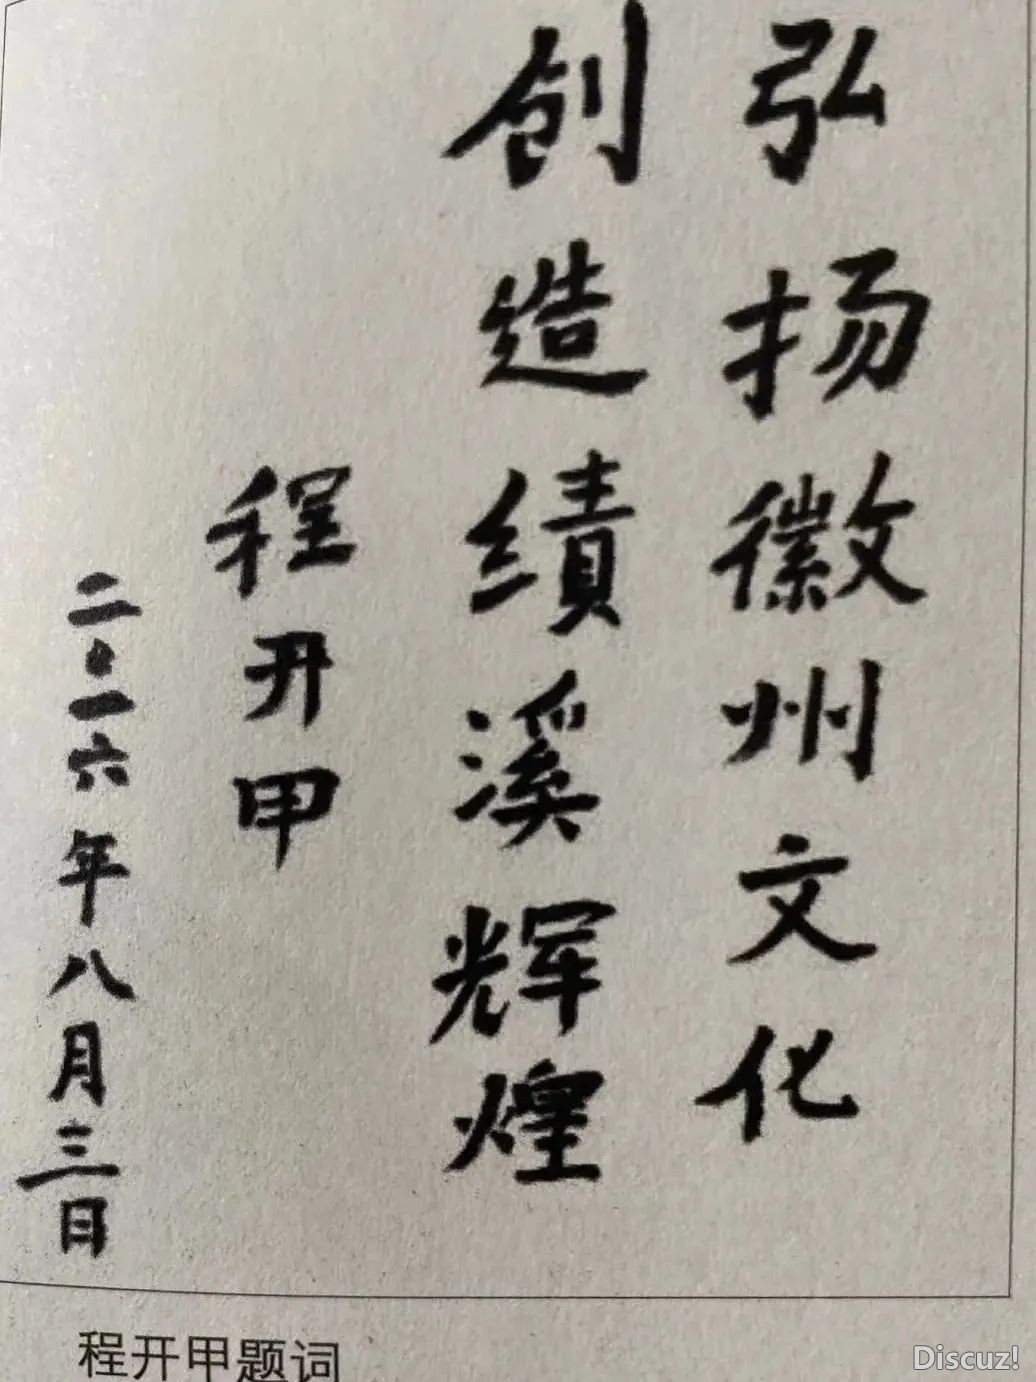 弘扬徽州文化
创造绩溪辉煌
程开甲
二〇一六年八月三日
程开甲题词
Discuz!